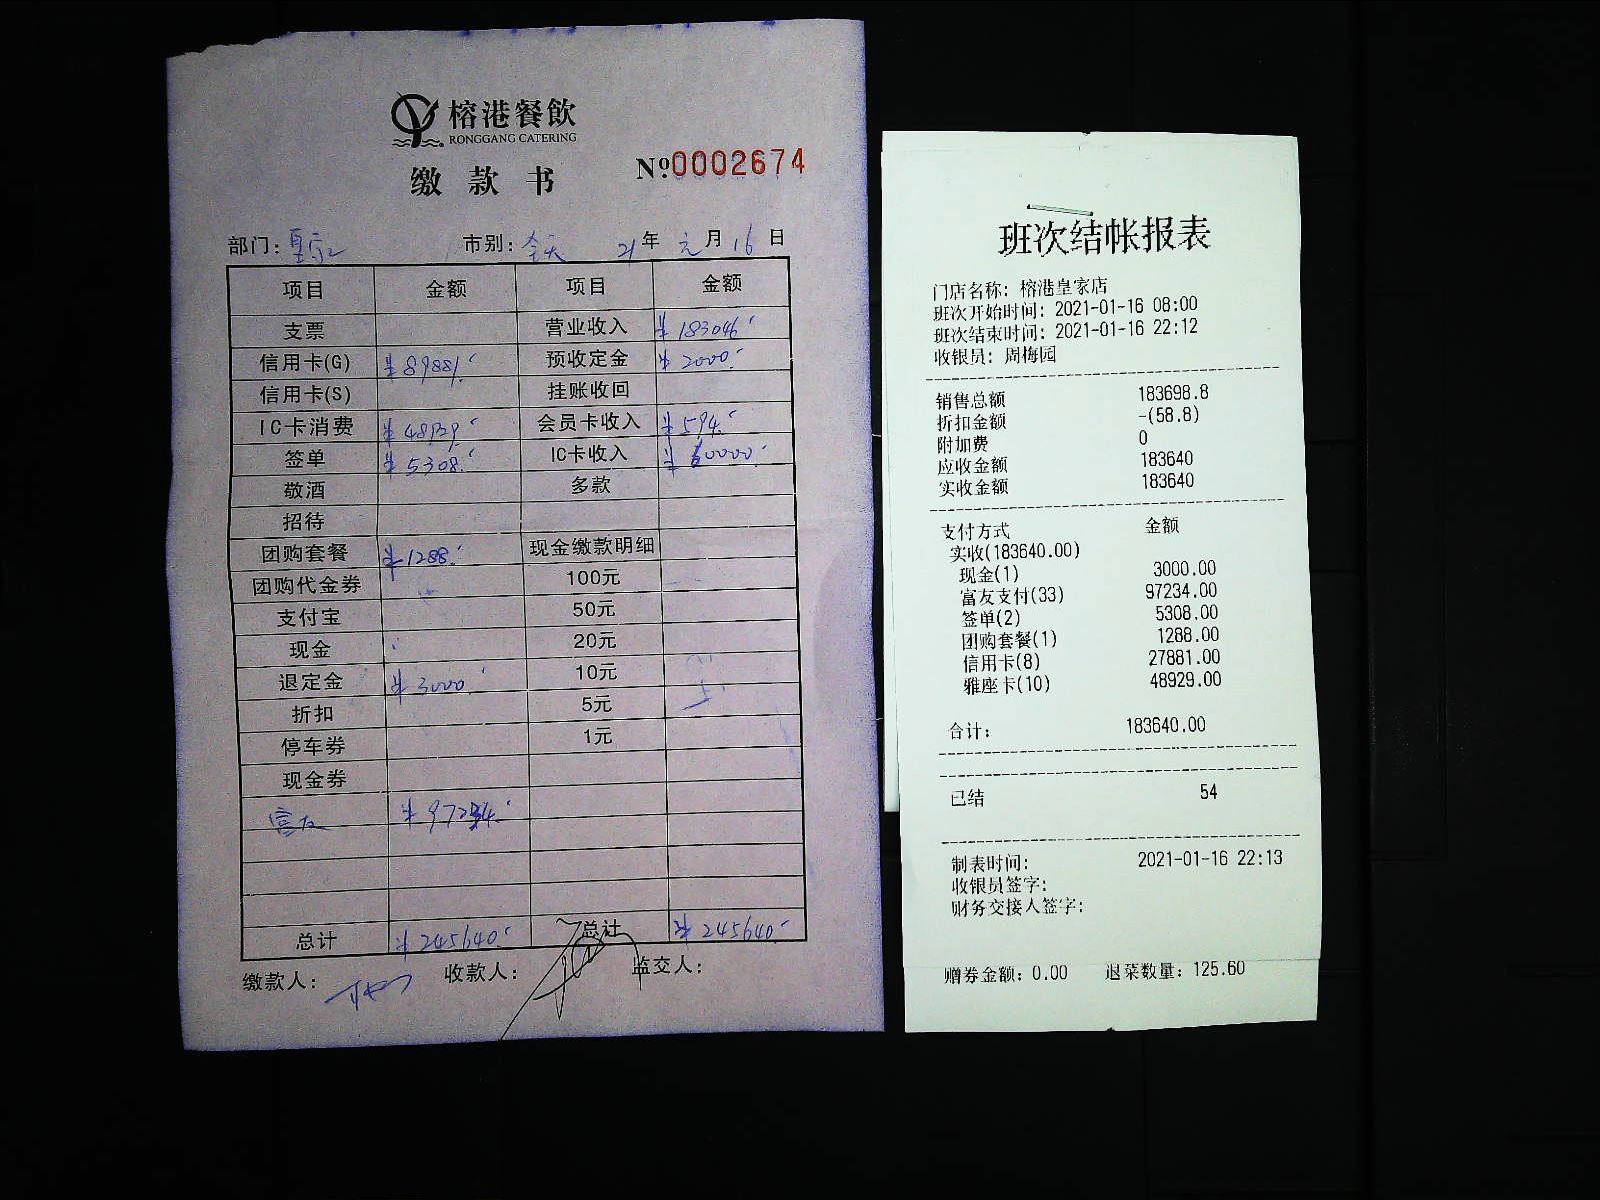 榕港餐飲
RONGGANG CATERING
缴款书
№0002674
部门: 皇家 市别: 全天 21年 元月 16日
项目 金额 项目 金额
支票 营业收入 ¥183046
信用卡(G) ¥89881 预收定金 ¥2000
信用卡(S) 挂账收回
IC卡消费 ¥48929 会员卡收入 ¥594
签单 ¥5308 IC卡收入 ¥60000
敬酒 多款
招待
团购套餐 ¥1288 现金缴款明细
团购代金券 100元
支付宝 50元
现金 20元
退定金 ¥3000 10元
折扣 5元
停车券 1元
现金券
富友 ¥97234
总计 ¥245640 总计 ¥245640
缴款人: 收款人: 监交人:
班次结帐报表
门店名称: 榕港皇家店
班次开始时间: 2021-01-16 08:00
班次结束时间: 2021-01-16 22:12
收银员: 周梅园
销售总额 183698.8
折扣金额 -(58.8)
附加费 0
应收金额 183640
实收金额 183640
支付方式 金额
实收(183640.00)
现金(1) 3000.00
富友支付(33) 97234.00
签单(2) 5308.00
团购套餐(1) 1288.00
信用卡(8) 27881.00
雅座卡(10) 48929.00
合计: 183640.00
已结 54
制表时间: 2021-01-16 22:13
收银员签字:
财务交接人签字:
赠券金额: 0.00 退菜数量: 125.60